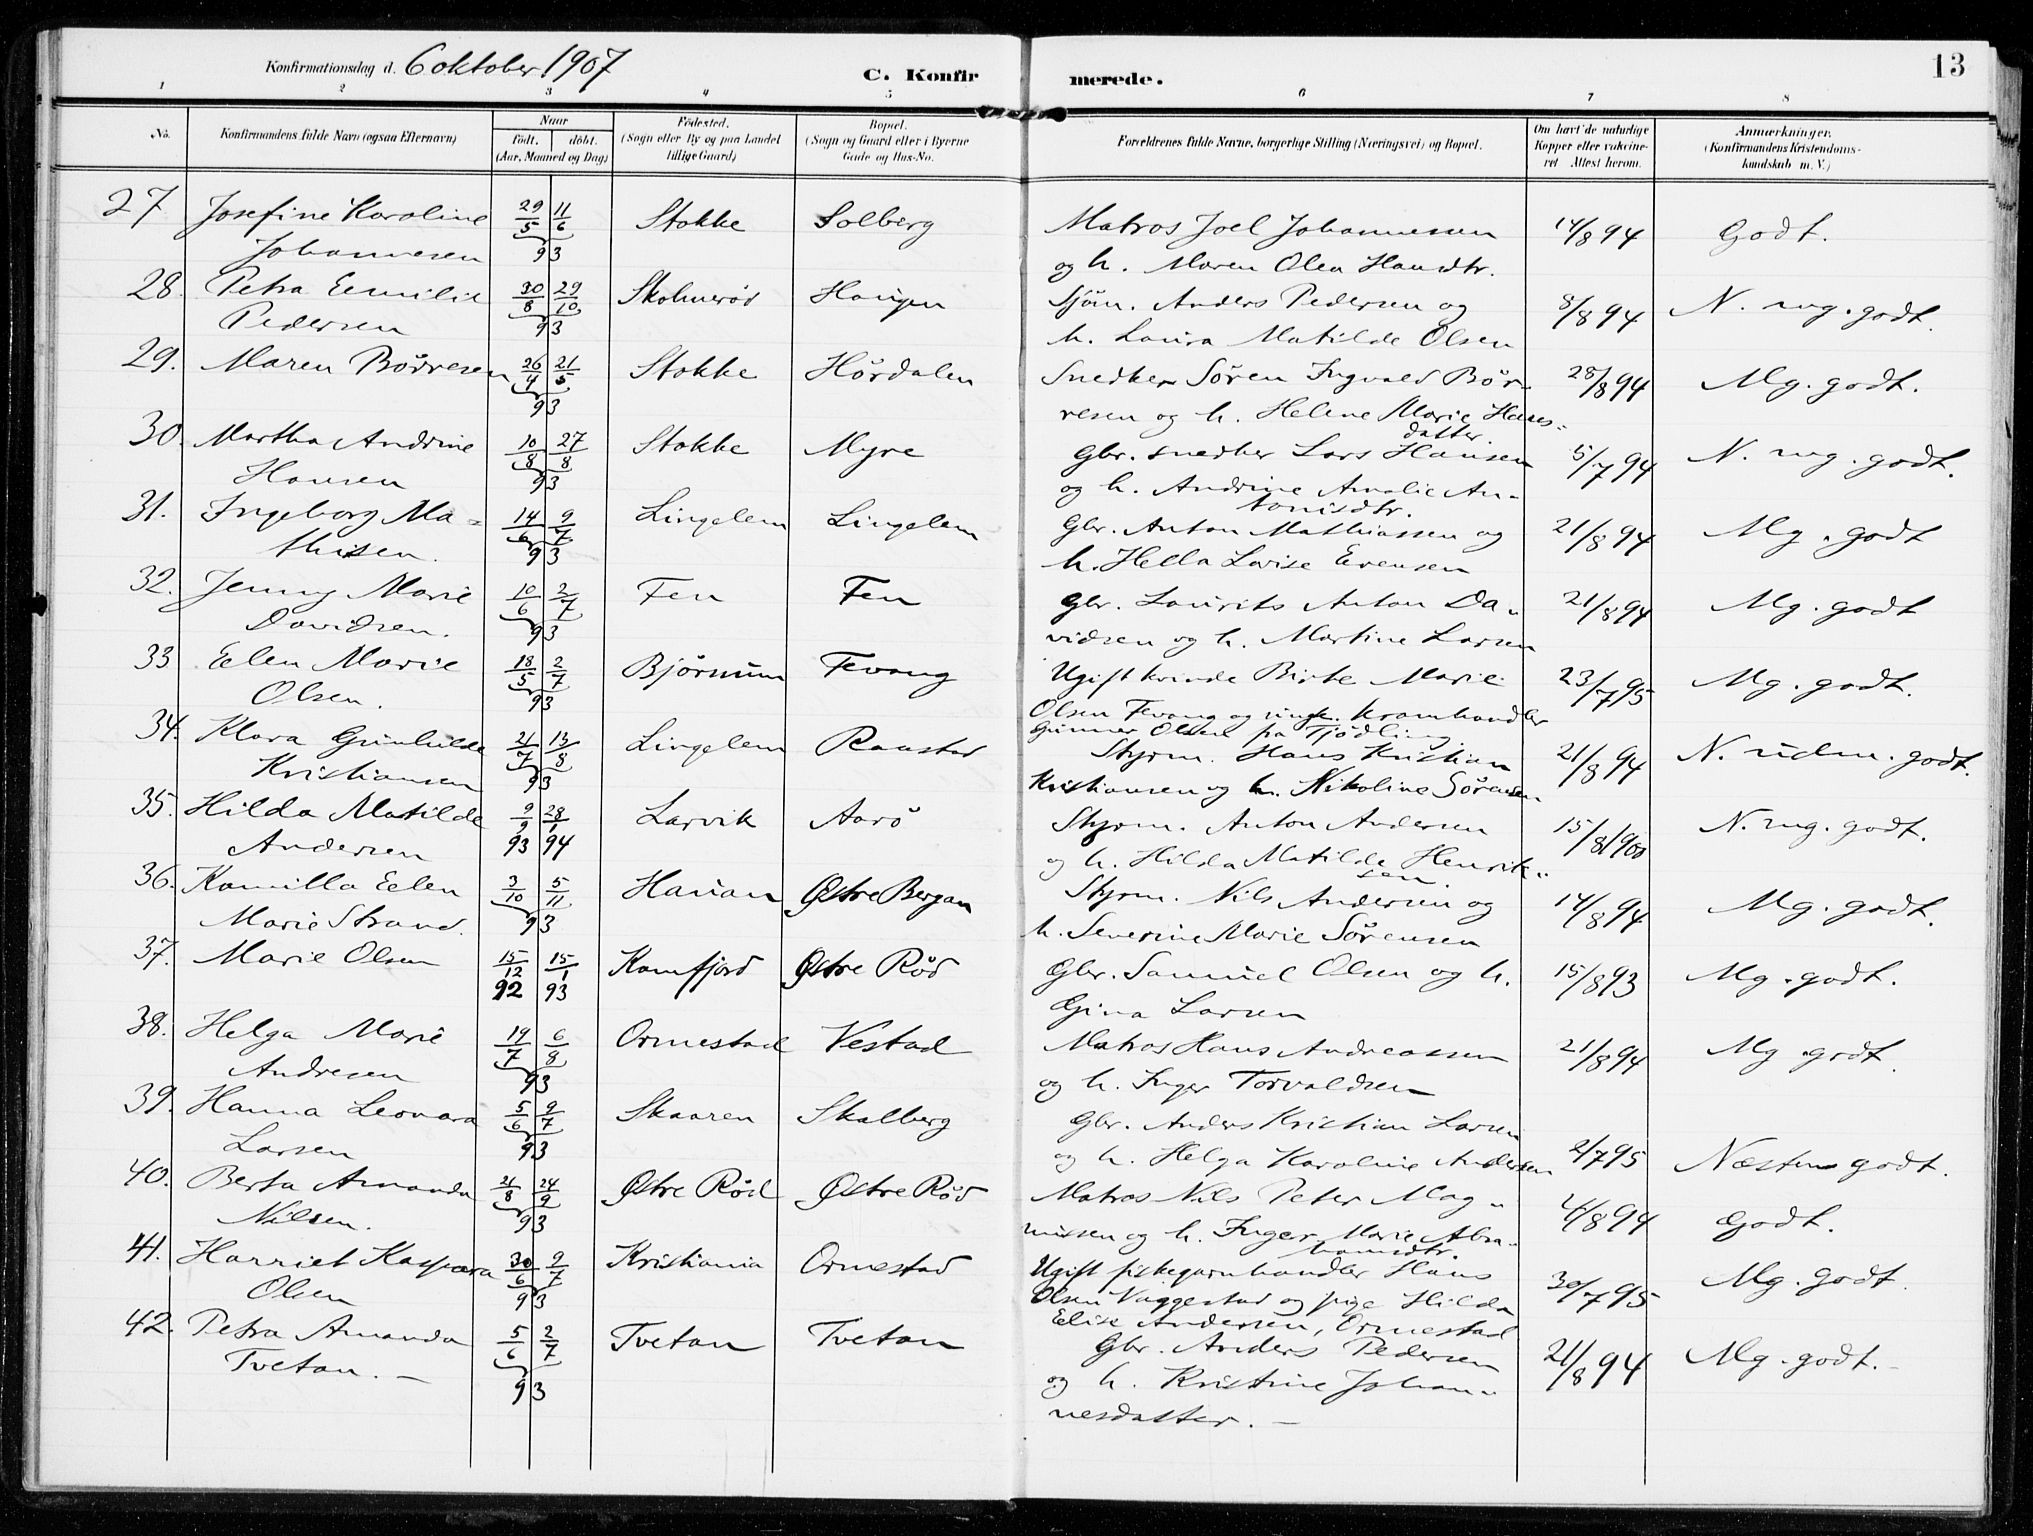 Konfirmationsdag d. 6 oktober 1907 C. Konfirmerede. 13
1 2 3 4 5 6 7 8
No. Konfirmandens fulde Navn (ogsaa Efternavn) Naar født. døbt. (Aar, Maaned og Dag) Fødested. (Sogn eller By og paa Landet tillige Gaard) Bopæl. (Sogn og Gaard eller i Byerne Gade og Hus-No. Forældrenes fulde Navne, borgerlige Stilling (Næringsvei) og Bopæl. Om havt de naturlige Kopper eller vakcineret Attest herom. Anmærkninger. (Konfirmandens Kristendomskundskab m. V.)
27 Josefine Karoline 29/5 11/6 Stokke Solberg Matros Joel Johannessen 14/8 94 Godt.
Johannesen 93 og h. Maren Olea Hansdtr.
28. Petra Emilie 30/8 29/10 Skolmerød Haugen Sjøm. Anders Pedersen og 8/8 94 N. mg. godt.
Pedersen 93 h. Laura Matilde Olsen
29. Maren Børresen 26/4 21/5 Stokke Hørdalen Snedker Søren Ingvald Bør- 28/8 94 Mg. godt.
93 resen og h. Helene Marie Hansdatter.
30. Martha Andrine 10/8 27/8 Stokke Myre Gbr. snedker Lars Hansen 5/7 94 N. mg. godt.
Hansen 93 og h. Andrine Amalie Antonisdtr.
31. Ingeborg Ma- 14/6 9/7 Lingelem Lingelem Gbr. Anton Mathiassen og 21/8 94 Mg. godt
thisen. 93 h. Hella Lovise Evensen
32. Jenny Marie 10/6 2/7 Fen Fen Gbr. Laurits Anton Da- 21/8 94 Mg. godt
Davidsen. 93 vidsen og h. Martine Larsen
33 Eelen Marie 18/5 2/7 Bjørnum Fevang Ugift kvinde Birte Marie 23/7 95 Mg. godt.
Olsen. 93 Olsen Fevang og ungk. Kramhandler
Gunner Olsen på Tjødling
34. Klara Gunhilde 21/7 13/8 Lingelem Raastad Styrm. Hans Kristian 21/8 94 N. udm. godt.
Kristiansen 93 Kristiansen og h. Nikoline Sørensen
35. Hilda Matilde 9/9 28/1 Larvik Aarø Styrm. Anton Andersen 15/8 1900 N. mg. godt.
Andersen 93 94 og h. Hilda Matilda Henriksen.
36. Kamilla Eelen 3/10 5/11 Hauan Østre Bergan Styrm. Nils Andersen og 14/8 94 Mg. godt.
Marie Strand. 93 h. Severine Marie Sørensen
37. Marie Olsen 15/12 15/1 Kamfjord Østre Rød Gbr. Samuel Olsen og h. 15/8 93 Mg. godt.
92 93 Gina Larsen
38. Helga Marie 19/7 6/8 Ormestad Vestad Matros Hans Andreassen 21/8 94 Mg. godt.
Andresen 93 og h. Inger Torvaldsen
39. Hanna Leonara 5/6 9/7 Skaaren Skalberg Gbr. Anders Kristian Larsen
Larsen 93 og h. Helga Karoline Andersen 2/7 95 Næsten godt.
40. Berta Amanda 21/8 24/9 Østre Rød Østre Rød Matros Nils Peter Mag- 4/8 94 Godt.
Nilsen. 93 nussen og h. Inger Marie Abrahamsdtr.
41. Harriet Kaspara 30/6 9/7 Kristiania Ormestad Ugift fiskegarnhandler Hans 30/7 95 Mg. godt.
Olsen 93 Olsen Vaggestad og pige Hilda
Elise Andersen, Ormestad
42. Petra Amanda 5/6 2/7 Tvetan Tvetan Gbr. Anders Pedersen 21/8 94 Mg. godt.-
Tvetan. - 93 og h. Kristine Johan-
nesdatter. -